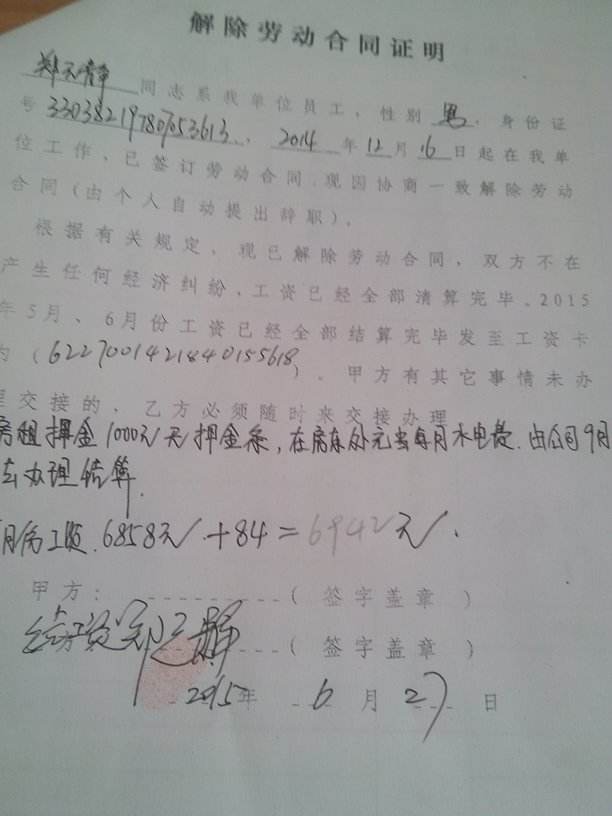 解除劳动合同证明
郑天静 同志系我单位员工，性别 男，身份证
号 330382197807053613，2014 年 12 月 16 日起在我单
位工作，已签订劳动合同，现因协商一致解除劳动
合同（由个人自动提出辞职）。
根据有关规定，现已解除劳动合同，双方不在
产生任何经济纠纷，工资已经全部清算完毕，2015
年5月、6月份工资已经全部结算完毕发至工资卡
内（6227001421840155618）。甲方有其它事情未办
理交接的，乙方必须随时来交接办理
房租押金1000元/无押金条，在房东处，每月水电费.由公司9月
去办理结算.
月份工资.6858元+84=6942元.
甲方：（签字盖章）
（签字盖章）
2015年 6 月 27 日